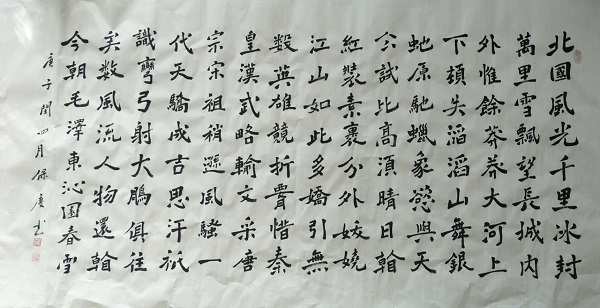 北國風光千里冰封
萬里雪飄望長城內
外惟餘莽莽大河上
下頓失滔滔山舞銀
蛇原馳蠟象慾與天
公試比高須晴日看
紅裝素裹分外妖嬈
江山如此多嬌引無
數英雄競折腰惜秦
皇漢武略輸文采唐
宗宋祖稍遜風騷一
代天驕成吉思汗祇
識彎弓射大鵰俱往
矣数風流人物還看
今朝毛澤東沁園春雪
庚子閏四月保